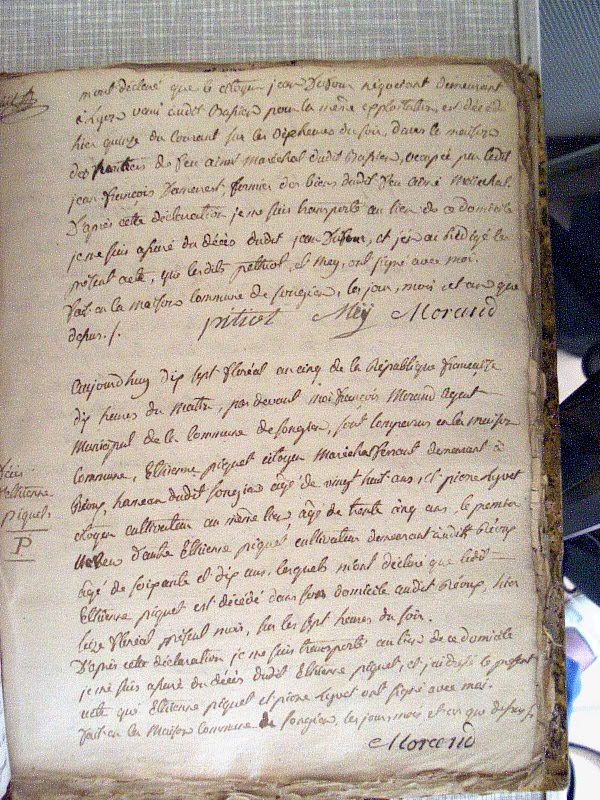 m'ont déclaré que le citoyen jean Dufour négociant demeurant
à Lyon venu audit pour la même exploitation, est décédé
hier quinze du courant sur les du soir, dans la maison
des de feu aimé maréchal dudit occupée par ledit
jean françois fermier des biens dudit feu aimé maréchal.
D'après cette déclaration je me suis transporté au lieu de ce domicile
je me suis assuré du décès dudit jean Dufour, et j'en ai rédigé le
présent acte, que lesdits pitiot, et Mey, ont signé avec moi.
fait en la maison commune de songieu, les jour, mois et an que
dessus ./.
pitiot Meÿ Morand
aujourdhuy dix sept floréal an cinq de la République française
dix heures du matin, par devant moi françois Morand agent
Municipal de la Commune de songieu, sont comparus en la maison
Commune, Ethienne piquet citoyen Marechal ferant demeurant à
hameau dudit songieu agé de vingt huit ans, et pierre
citoyen cultivateur au même lieu, agé de trente cinq ans, le premier
Neveu d'autre Ethienne piquet cultivateur demeurant audit
agé de soixante et dix ans, lesquels m'ont déclaré que ledit
Ethienne piquet est décédé dans son domicile audit hier
seize floréal présent mois, sur les sept heures du soir.
D'après cette déclaration je me suis transporté au lieu de ce domicile
je me suis assuré du décès dudit Ethienne piquet, et j'ai dressé le présent
acte que Ethienne piquet et pierre ont signé avec moi.
fait en la Maison Commune de songieu, les jour mois et an que dessus ./.
Morand
Décès
d'Ethienne
piquet
P